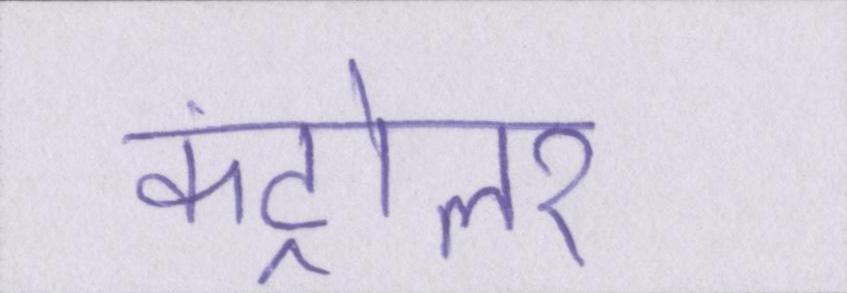 कंट्रोलर